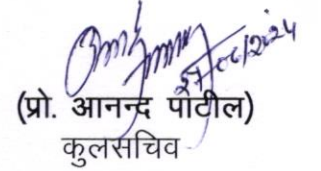 27/06/2024
(प्रो. आनन्द पाटील)
कुलसचिव